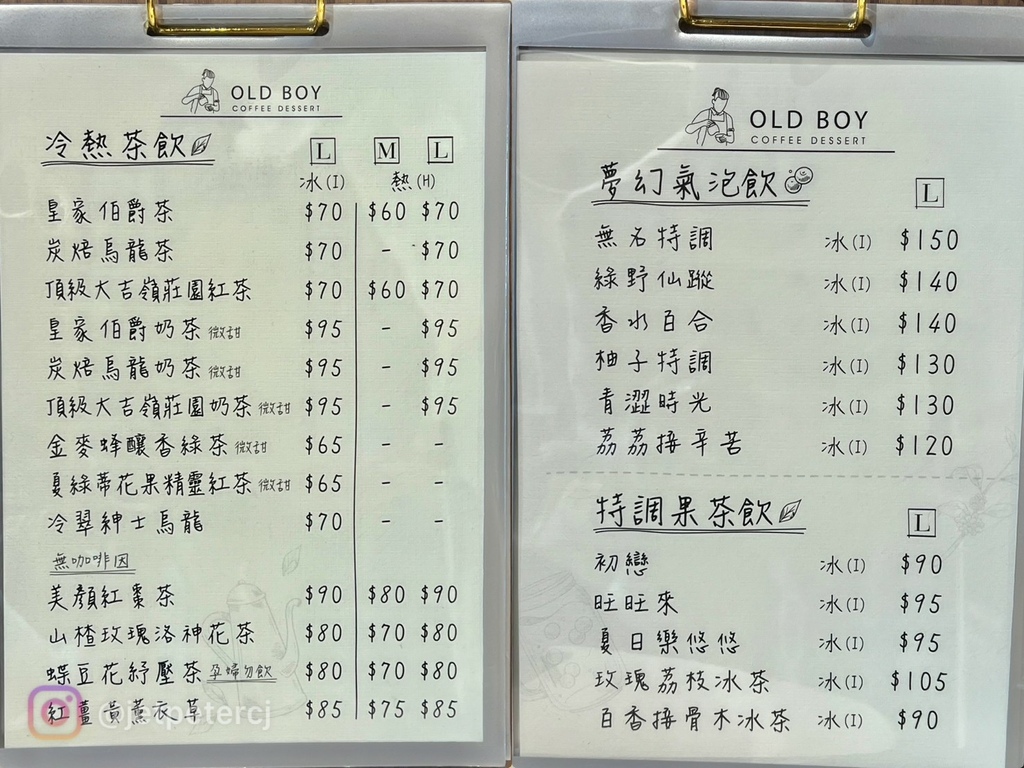 OLD BOY
COFFEE DESSERT
冷熱茶飲 L M L
冰(I) 熱(H)
皇家伯爵茶 $70 $60 $70
炭焙烏龍茶 $70 - $70
頂級大吉嶺莊園紅茶 $70 $60 $70
皇家伯爵奶茶 微甜 $95 - $95
炭焙烏龍奶茶 微甜 $95 - $95
頂級大吉嶺莊園奶茶 微甜 $95 - $95
金麥蜂釀香綠茶 微甜 $65 - -
夏綠蒂花果精靈紅茶 微甜 $65 - -
冷翠紳士烏龍 $70 - -
無咖啡因
美顏紅棗茶 $90 $80 $90
山楂玫瑰洛神花茶 $80 $70 $80
蝶豆花紓壓茶 孕婦勿飲 $80 $70 $80
紅薑黃薰衣草 $85 $75 $85
@jeepetercj
OLD BOY
COFFEE DESSERT
夢幻氣泡飲 L
無名特調 冰(I) $150
綠野仙蹤 冰(I) $140
香水百合 冰(I) $140
柚子特調 冰(I) $130
青澀時光 冰(I) $130
荔荔接辛苦 冰(I) $120
特調果茶飲 L
初戀 冰(I) $90
旺旺來 冰(I) $95
夏日樂悠悠 冰(I) $95
玫瑰荔枝冰茶 冰(I) $105
百香接骨木冰茶 冰(I) $90